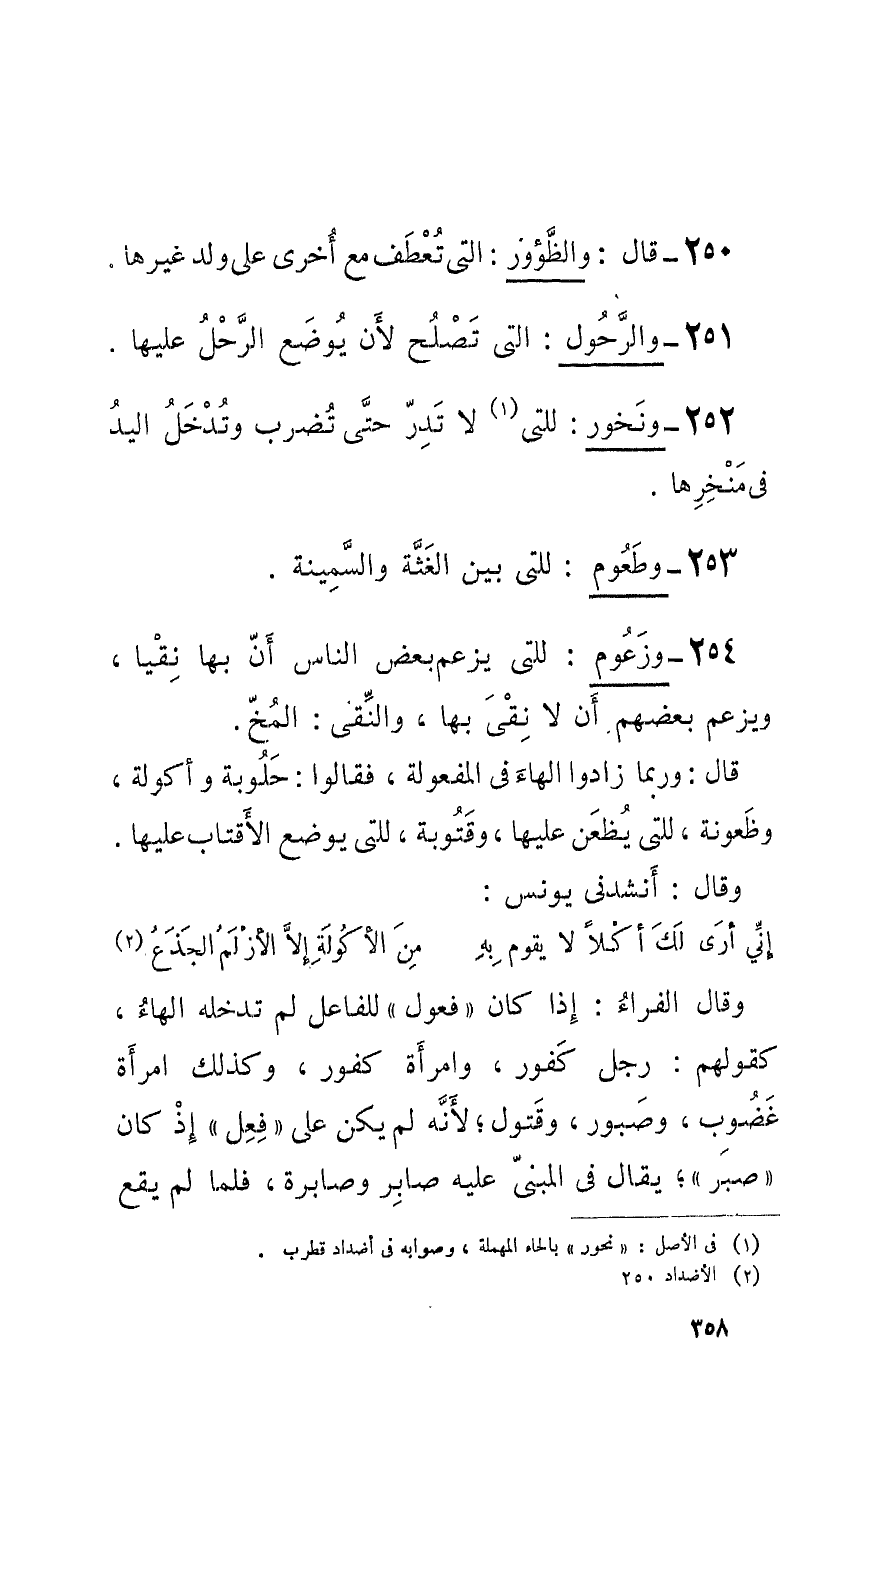 ٢٥٠ ــ قال : والظَّؤُور : التى تُعْطَف مع أُخرى على ولد غيرها .
٢٥١ ــ والرَّحُول : التى تَصْلُح لأَن يُوضَع الرَّحْلُ عليها .
٢٥٢ ــ ونَخور : للتى (١) لا تَدِرّ حتَّى تُضرب وتُدْخَلُ اليدُ
فى مَنْخِرِها .
٢٥٣ ــ وطَعُوم : للتى بين الغَثَّة والسَّمِينة .
٢٥٤ ــ وزَعُوم : للتى يزعم بعض الناس أَنّ بها نِقْيا ،
ويزعم بعضهم أَن لا نِقْىَ بها ، والنِّقى : المُخّ .
قال : وربما زادوا الهاءَ فى المفعولة ، فقالوا : حَلُوبة وأكولة ،
وظَعونة ، للتى يُظعَن عليها ، وقَتُوبة ، للتى يوضع الأَقتاب عليها .
وقال : أَنشدنى يونس :
إنِّي أرَى لَكَ أكْلاً لا يقوم بِهِ     مِنَ الأكُولَةِ إلاَّ الأزْلَمُ الجَذَعُ (٢)
وقال الفراءُ : إِذا كان « فعول » للفاعل لم تدخله الهاءُ ،
كقولهم : رجل كَفور ، وامرأَة كفور ، وكذلك امرأَة
غَضُوب ، وصَبور ، وقَتول ؛ لأَنَّه لم يكن على « فِعِل » إِذْ كان
« صبَر » ؛ يقال فى المبنىّ عليه صابِر وصابرة ، فلما لم يقع
(١) فى الأصل : « نحور » بالحاء المهملة ، وصوابه فى أضداد قطرب .
(٢) الأضداد ٢٥٠
٣٥٨